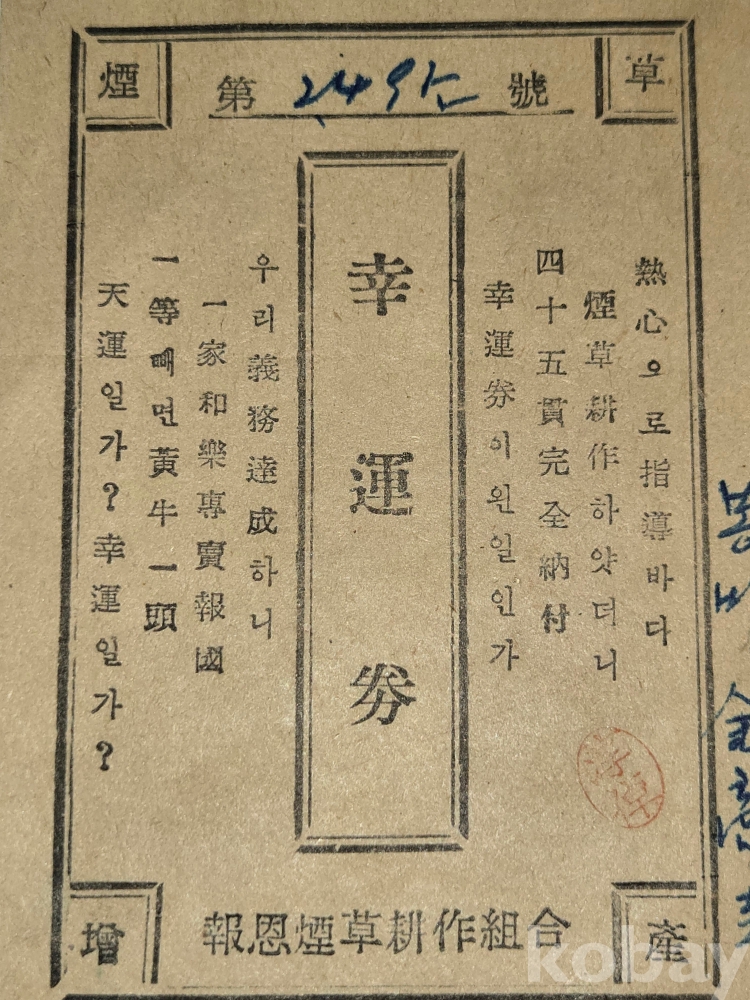 煙 草
第 24 号
熱心으로指導바다
煙草耕作하얏더니
四十五貫完全納付
幸運券이원일인가
幸運券
우리義務達成하니
一家和樂專賣報國
一等빼면黃牛一頭
天運일가?幸運일가?
增 產
報恩煙草耕作組合
kobay